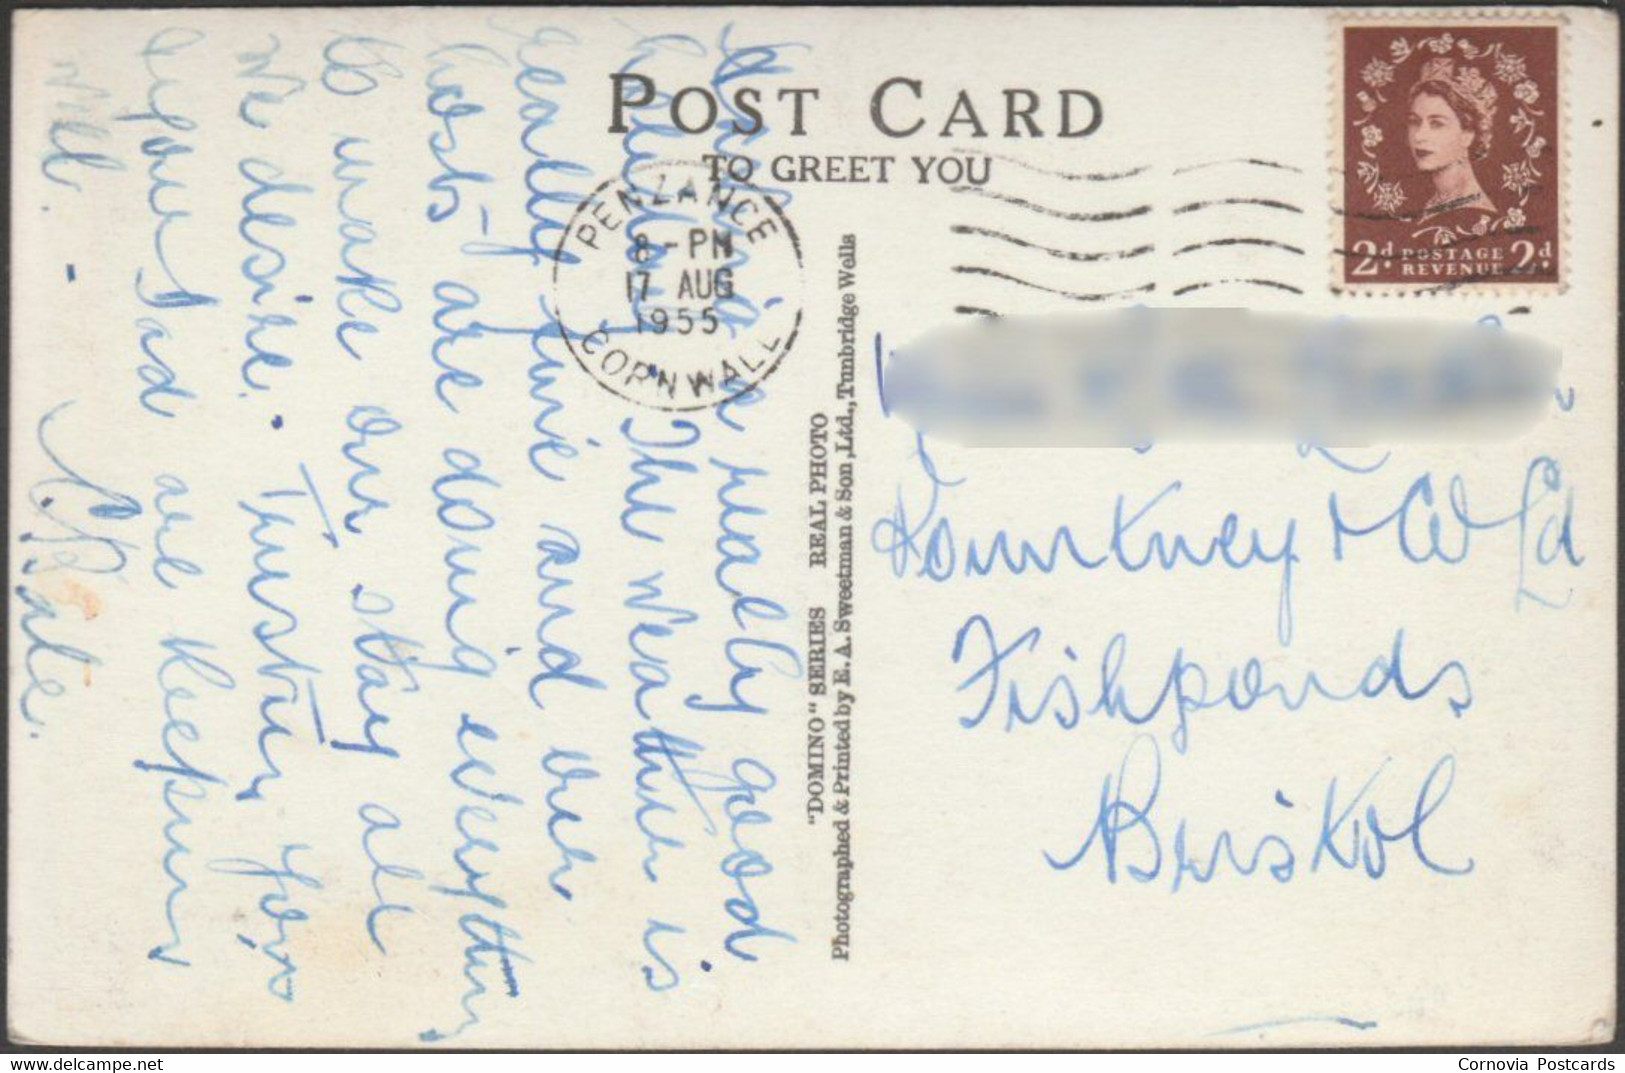 POST CARD
TO GREET YOU
PENZANCE
8 - PM
17 AUG
1955
CORNWALL
2d POSTAGE 2d
REVENUE
Having a really good
holiday. The weather is
really fine and our
hosts are doing everything
to make our stay all
we desire. Trusting you
and are keeping
well.
"DOMINO" SERIES REAL PHOTO
Photographed & Printed by E. A. Sweetman & Son, Ltd., Tunbridge Wells
Ld
Fishponds
Bristol
Cornovia Postcards